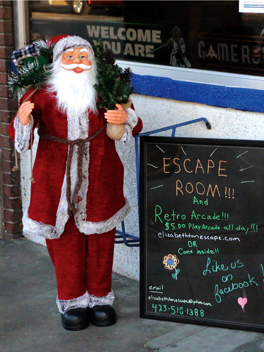 WELCOME
YOU ARE
GAMERS
ESCAPE
ROOM!!!
And
Retro Arcade!!!
$5.00 Play Arcade all day!!!
elizabethtonescape.com
OR
Come inside!!
Like us
on
facebook!
email
423-518-1388